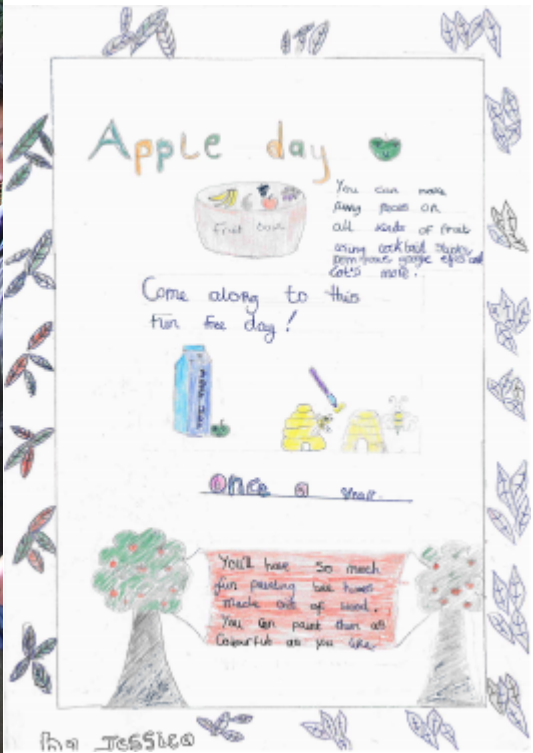 Apple day
Fruit bowl
You can make
funny faces on
all kinds of fruit
using cocktail sticks,
pom poms, google eyes and
lot's more.
Come along to this
fun free day!
Once a year.
You'll have so much
fun painting bee homes
made out of wood.
You can paint them as
colourful as you like
by Jessica